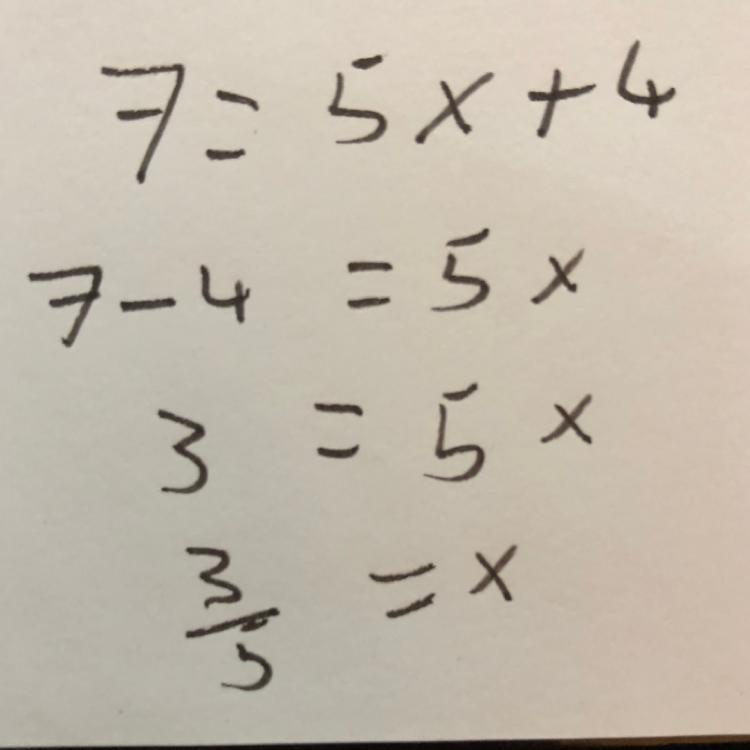 7 = 5x + 4
7 - 4 = 5x
3 = 5x
3/5 = x